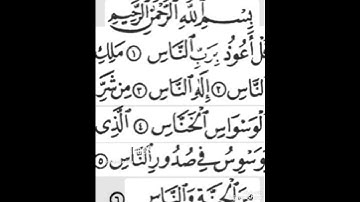 بِسْمِ ٱللَّهِ ٱلرَّحْمَٰنِ ٱلرَّحِيمِ
قُلْ أَعُوذُ بِرَبِّ ٱلنَّاسِ ١ مَلِكِ
ٱلنَّاسِ ٢ إِلَٰهِ ٱلنَّاسِ ٣ مِن شَرِّ
ٱلْوَسْوَاسِ ٱلْخَنَّاسِ ٤ ٱلَّذِى
يُوَسْوِسُ فِى صُدُورِ ٱلنَّاسِ ٥
مِنَ ٱلْجِنَّةِ وَٱلنَّاسِ ٦